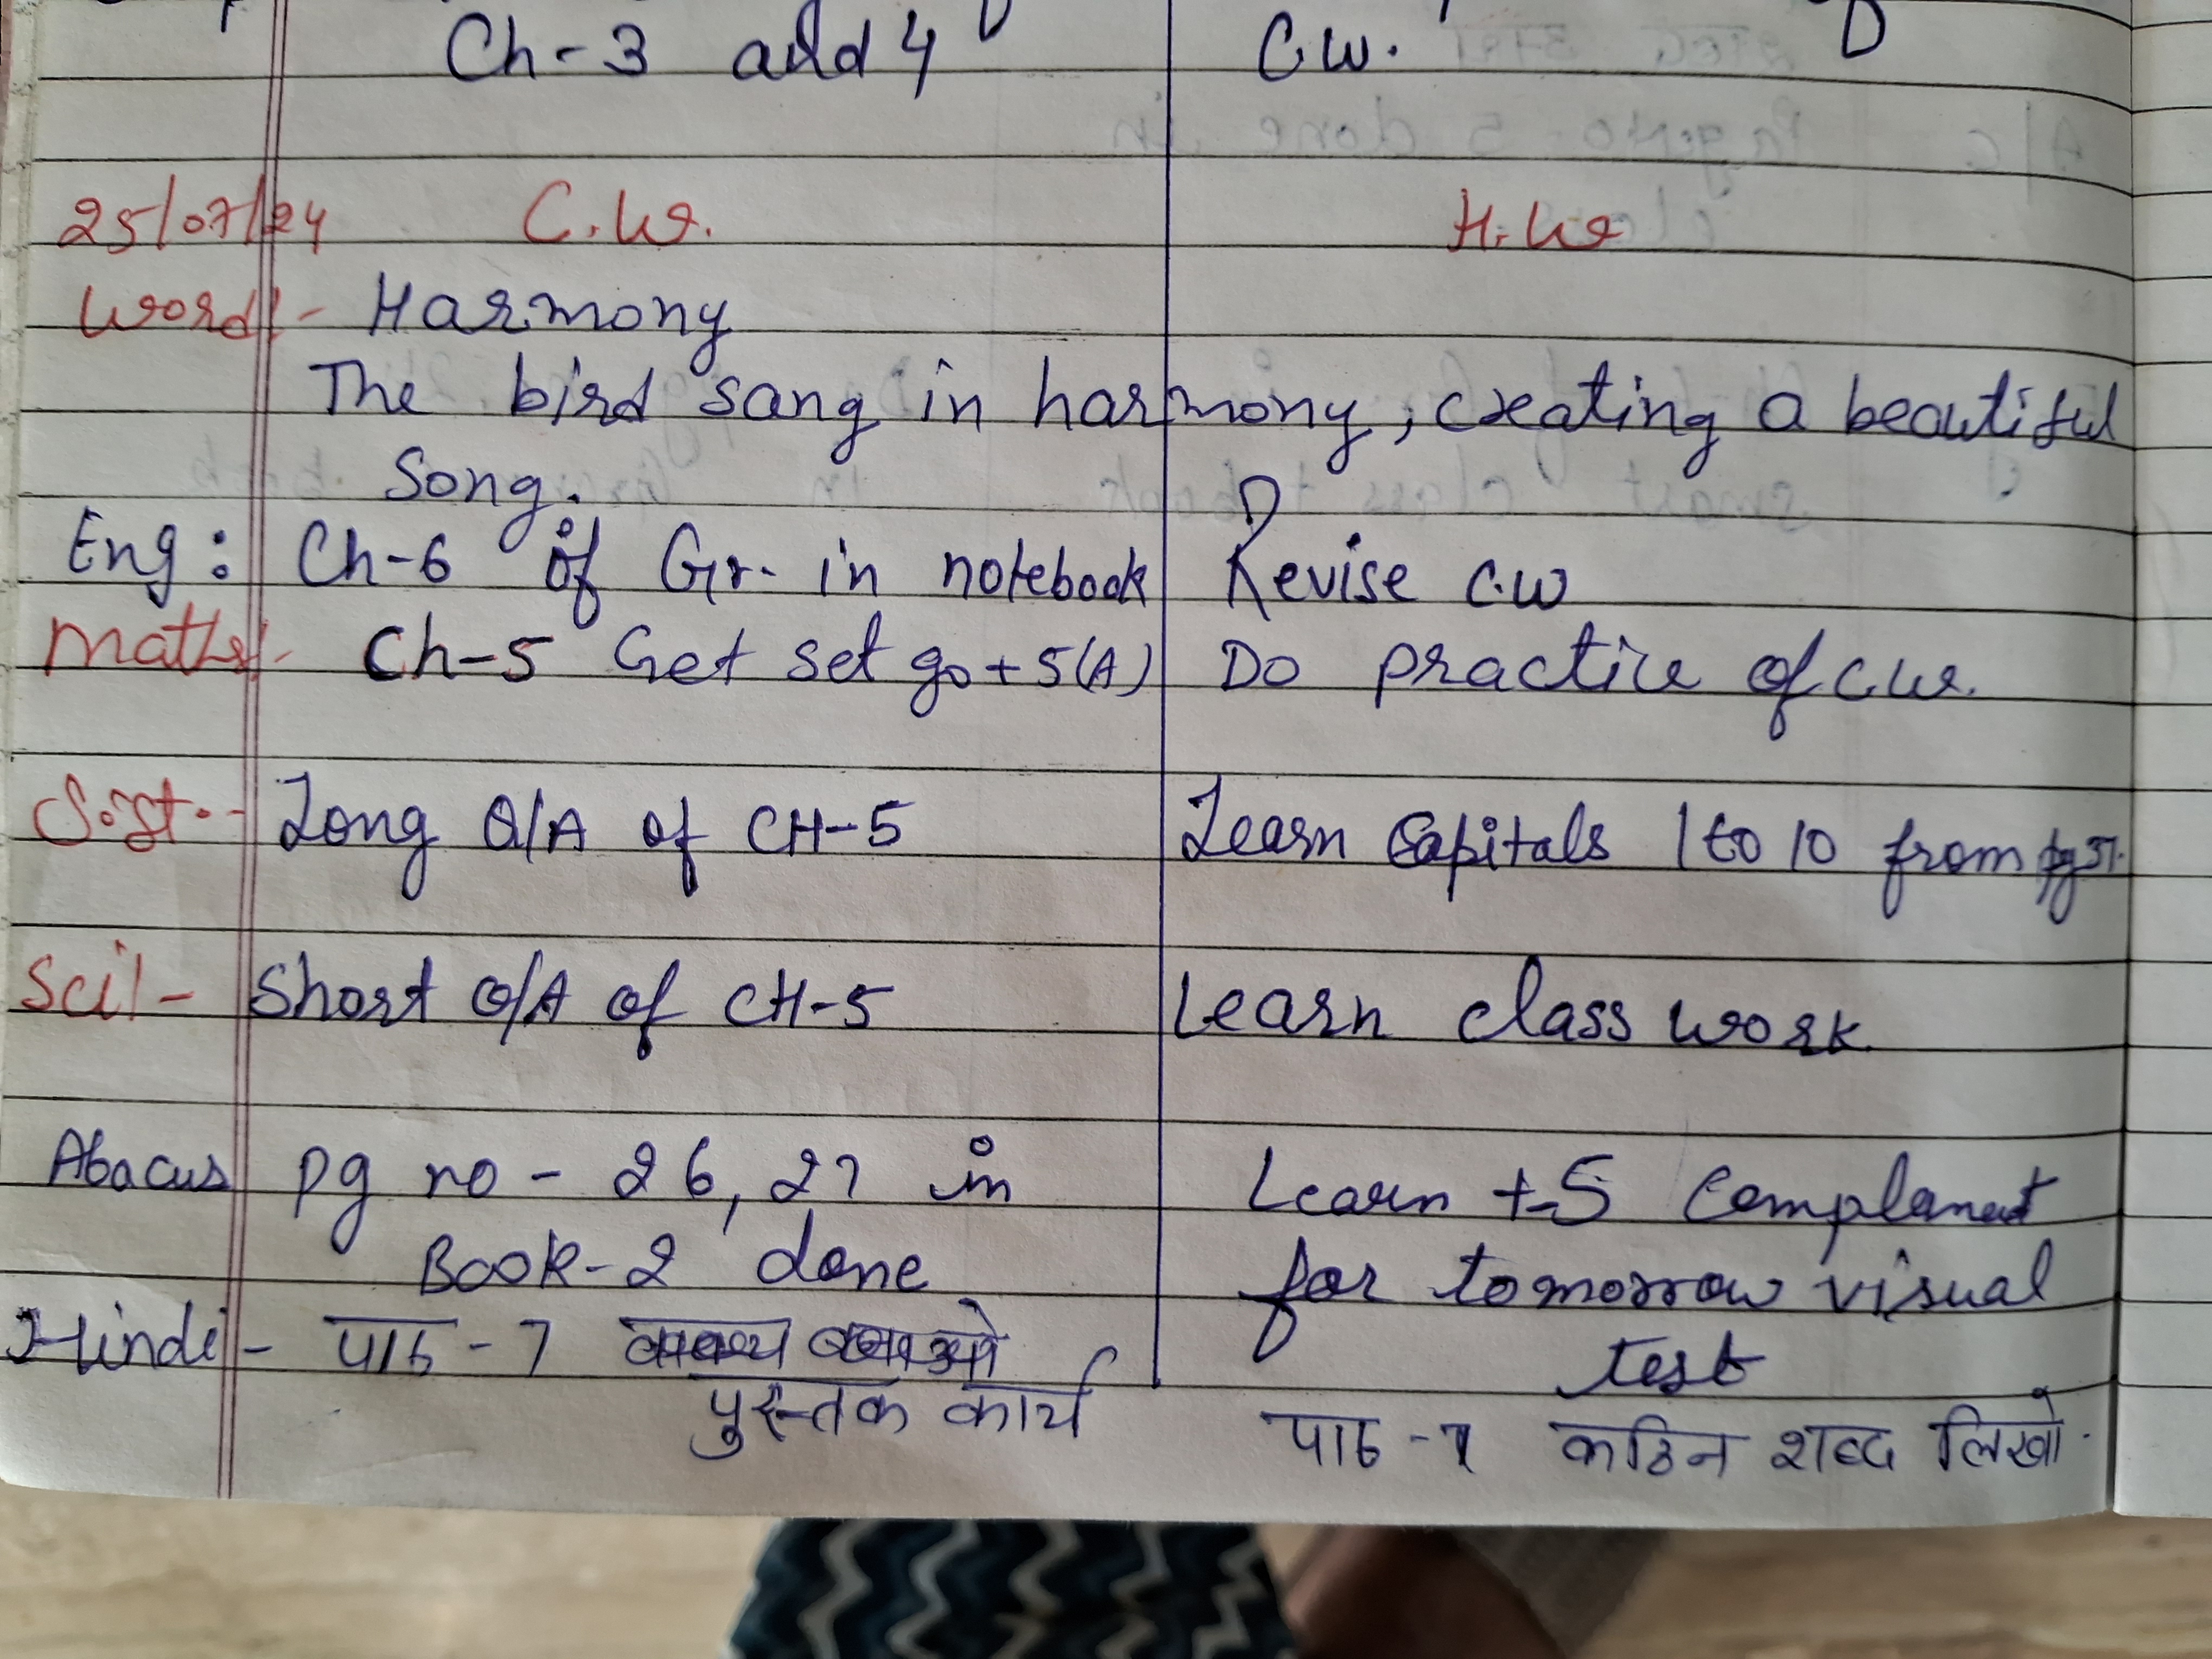 Ch-3 and 4 C.W.
25/07/24 C.W. H.W
Word:- Harmony
The bird sang in harmony, creating a beautiful
song.
Eng: Ch-6 of Gr. in notebook Revise C.W
Maths:- Ch-5 Get set go + 5(A) Do practice of C.W.
S.St:- Long Q/A of CH-5 Learn Capitals 1 to 10 from pg 51.
Sci:- Short Q/A of CH-5 Learn class work
Abacus Pg no - 26, 27 in Learn +-5 Complement
Book-2 done for tomorrow visual
Hindi:- पाठ - 7 test
पुस्तक कार्य पाठ - कठिन शब्द लिखो.